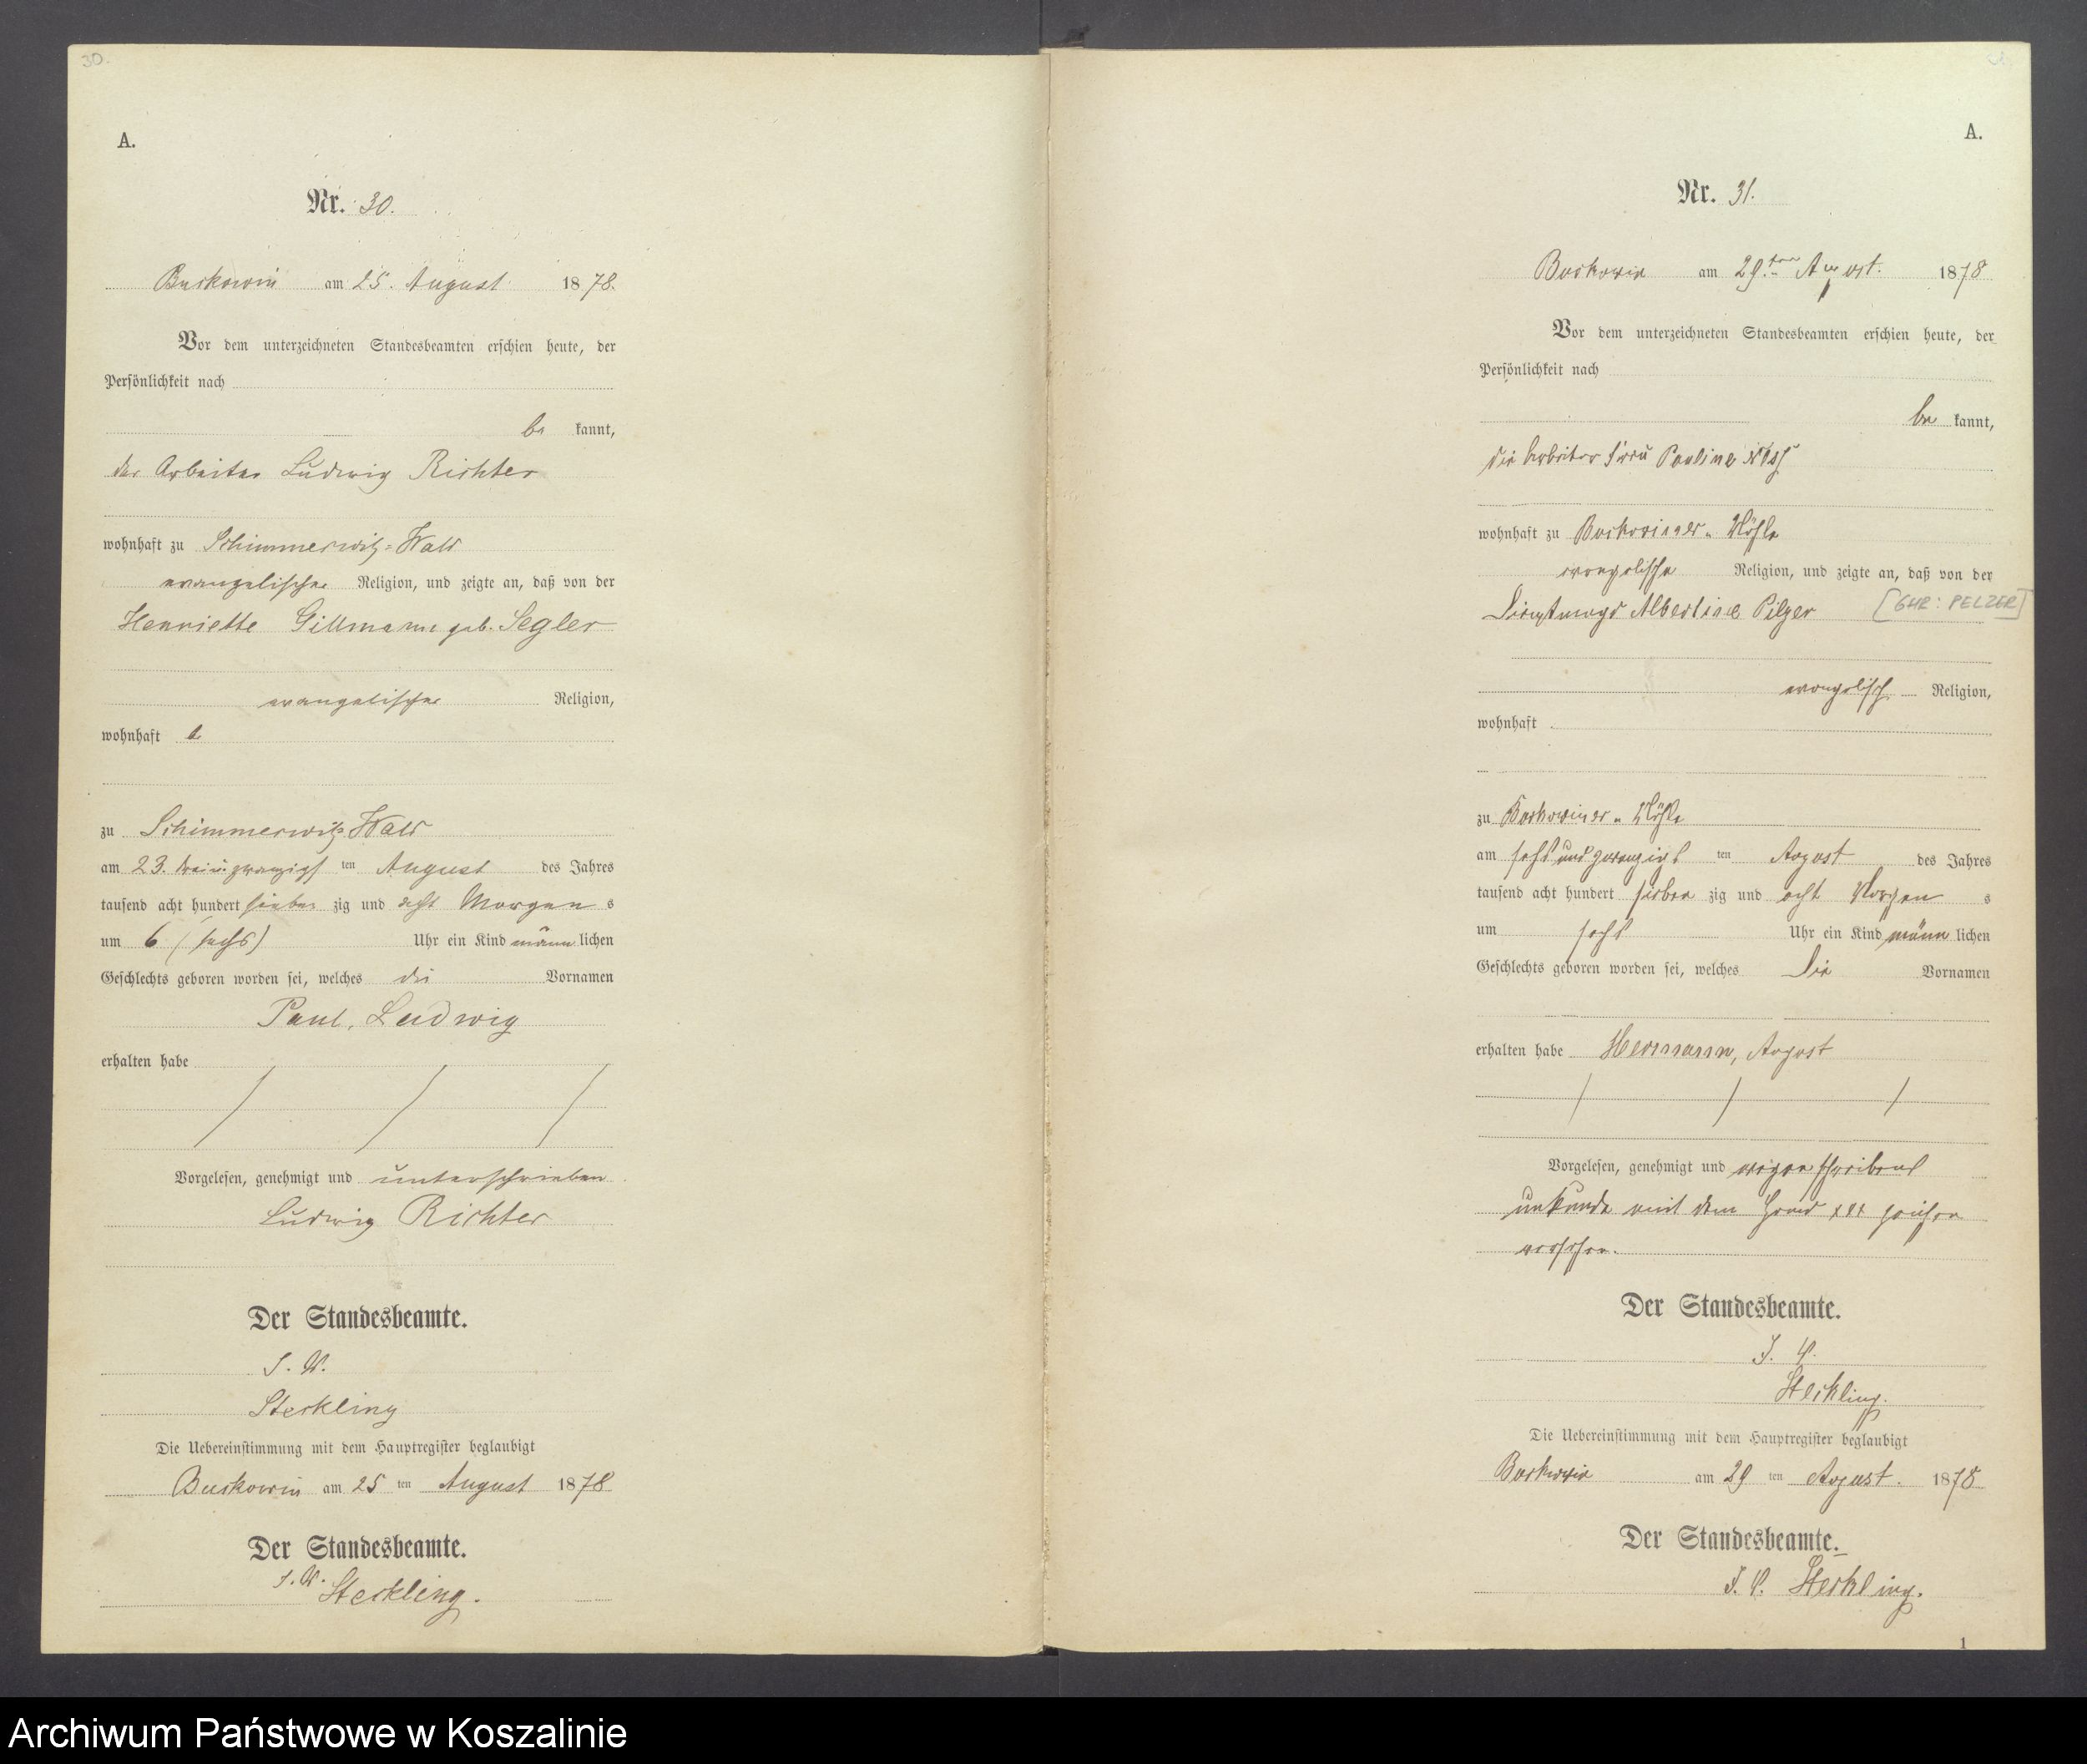 30.
A.
Nr. 30.
Buckowin am 25. August 1878.
Vor dem unterzeichneten Standesbeamten erschien heute, der
Persönlichkeit nach
be kannt,
der Arbeiter Ludwig Richter
wohnhaft zu Schimmerwitz-Wald
evangelischer Religion, und zeigte an, daß von der
Henriette Gillmann geb. Segler
evangelischer Religion,
wohnhaft
zu Schimmerwitz-Wald
am 23. dreiundzwanzigs ten August des Jahres
tausend acht hundert sieben zig und acht Morgen s
um 6 (sechs) Uhr ein Kind männ lichen
Geschlechts geboren worden sei, welches die Vornamen
Paul, Ludwig
erhalten habe
Vorgelesen, genehmigt und unterschrieben
Ludwig Richter
Der Standesbeamte.
J. V.
Steckling
Die Uebereinstimmung mit dem Hauptregister beglaubigt
Buckowin am 25 ten August 1878
Der Standesbeamte.
J. V. Steckling.
A.
Nr. 31.
Buckowin am 29.ten August. 1878
Vor dem unterzeichneten Standesbeamten erschien heute, der
Persönlichkeit nach
be kannt,
die Arbeiter Frau Pauline
wohnhaft zu Buckowiner-Mühle
evangelische Religion, und zeigte an, daß von der
Dienstmagd Albertine Pilzer [GHR: PELZER]
evangelisch Religion,
wohnhaft
zu Buckowiner-Mühle
am sechs und zwanzigs ten August des Jahres
tausend acht hundert sieben zig und acht Morgen s
um sechs Uhr ein Kind männ lichen
Geschlechts geboren worden sei, welches die Vornamen
erhalten habe Hermann, August
Vorgelesen, genehmigt und wegen Schreibens
unkunde mit dem Hand xxx zeichen
versehen.
Der Standesbeamte.
J. V.
Steckling.
Die Uebereinstimmung mit dem Hauptregister beglaubigt
Buckowin am 29 ten August. 1878
Der Standesbeamte.
J. V. Steckling.
1
Archiwum Państwowe w Koszalinie